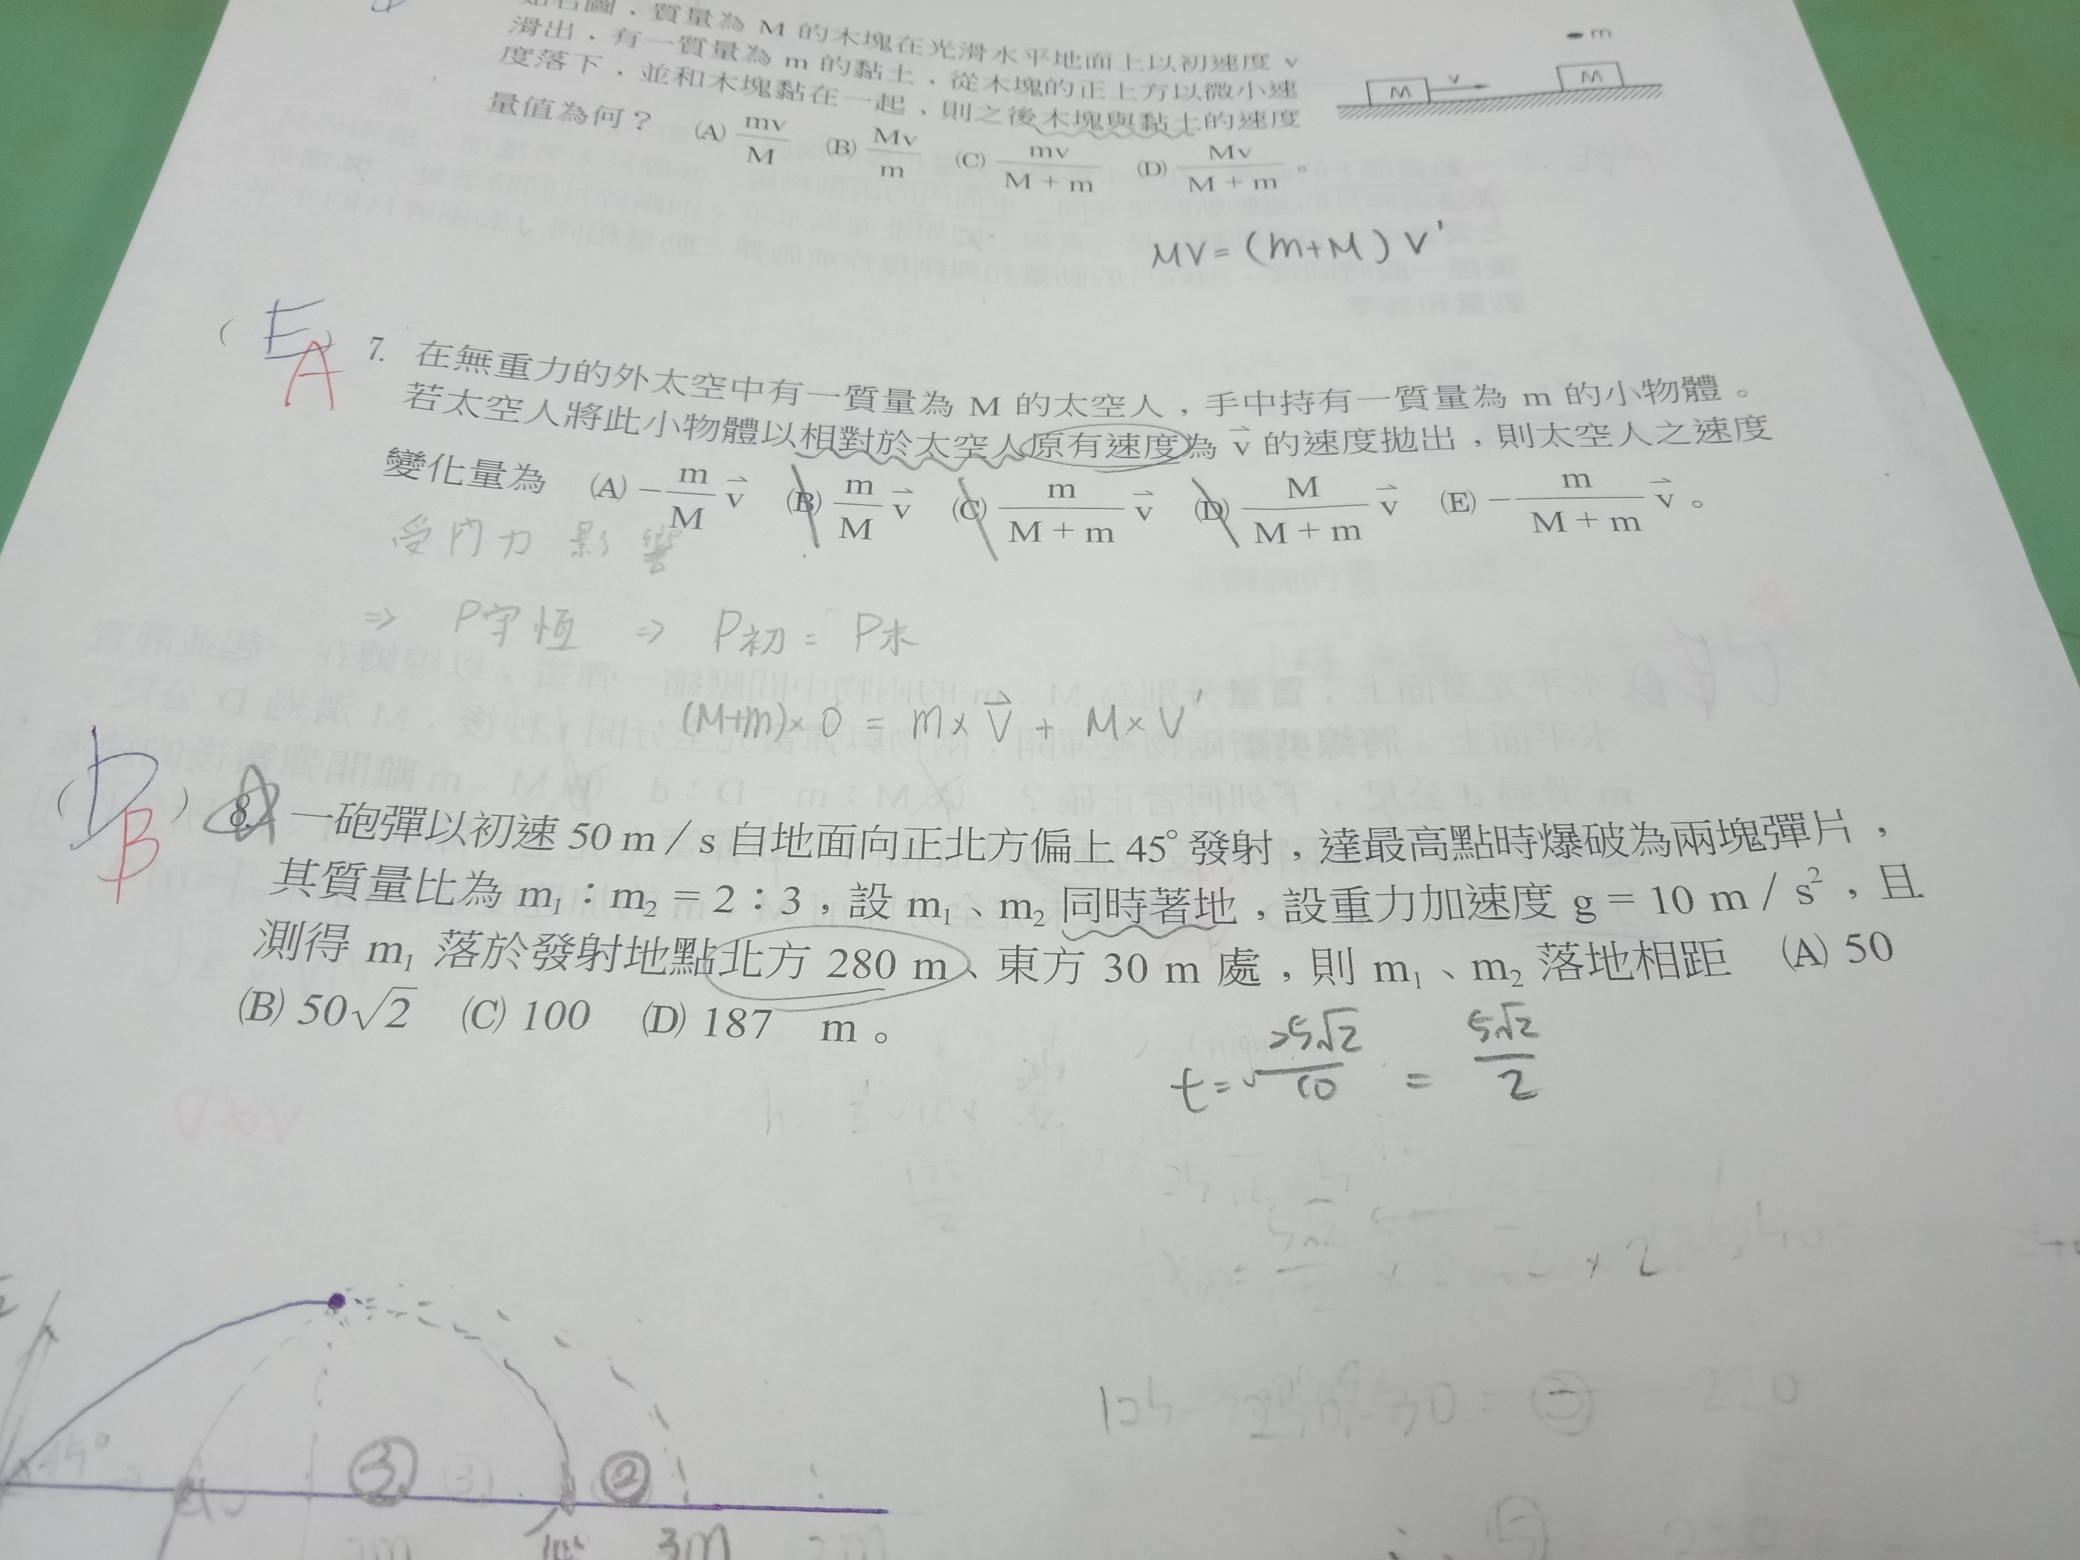 如右圖，質量為 M 的木塊在光滑水平地面上以初速度 v
滑出，有一質量為 m 的黏土，從木塊的正上方以微小速
度落下，並和木塊黏在一起，則之後木塊與黏土的速度
量值為何？ (A) mv/M (B) Mv/m (C) mv/(M + m) (D) Mv/(M + m)。
m
M v M
MV = (m+M) V'
( E )
A
7. 在無重力的外太空中有一質量為 M 的太空人，手中持有一質量為 m 的小物體。
若太空人將此小物體以相對於太空人原有速度為 v⃗ 的速度拋出，則太空人之速度
變化量為 (A) −m/M v⃗ (B) m/M v⃗ (C) m/(M + m) v⃗ (D) M/(M + m) v⃗ (E) −m/(M + m) v⃗。
受內力影響
⇒ P守恆 ⇒ P初 = P末
(M+m)×0 = m×V⃗ + M×V'
( D )
B
8. 一砲彈以初速 50 m / s 自地面向正北方偏上 45° 發射，達最高點時爆破為兩塊彈片，
其質量比為 m₁：m₂ = 2：3，設 m₁、m₂ 同時著地，設重力加速度 g = 10 m / s²，且
測得 m₁ 落於發射地點北方 280 m、東方 30 m 處，則 m₁、m₂ 落地相距 (A) 50
(B) 50√2 (C) 100 (D) 187 m。
t = 25√2/10 = 5√2/2
× 2
= 220
45°
③ ②
3m